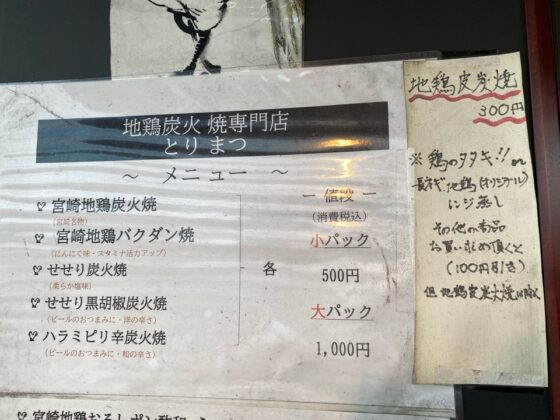 地鶏炭火 焼専門店
とり まつ
〜 メニュー 〜
宮崎地鶏炭火焼
(宮崎名物)
宮崎地鶏バクダン焼
(にんにく味・スタミナ活力アップ)
せせり炭火焼
(柔らか塩味)
せせり黒胡椒炭火焼
(ビールのおつまみに・洋の辛さ)
ハラミピリ辛炭火焼
(ビールのおつまみに・和の辛さ)
各
ー 値段 ー
(消費税込)
小パック
500円
大パック
1,000円
宮崎地鶏おろしポン酢和
地鶏皮炭焼
300円
※ 鶏のタタキ!! or
長ネギ 地鶏(オリジナール)
レンジ蒸し
その他の商品
お買い求め頂くと
(100円引き)
但 地鶏皮炭火焼は除く